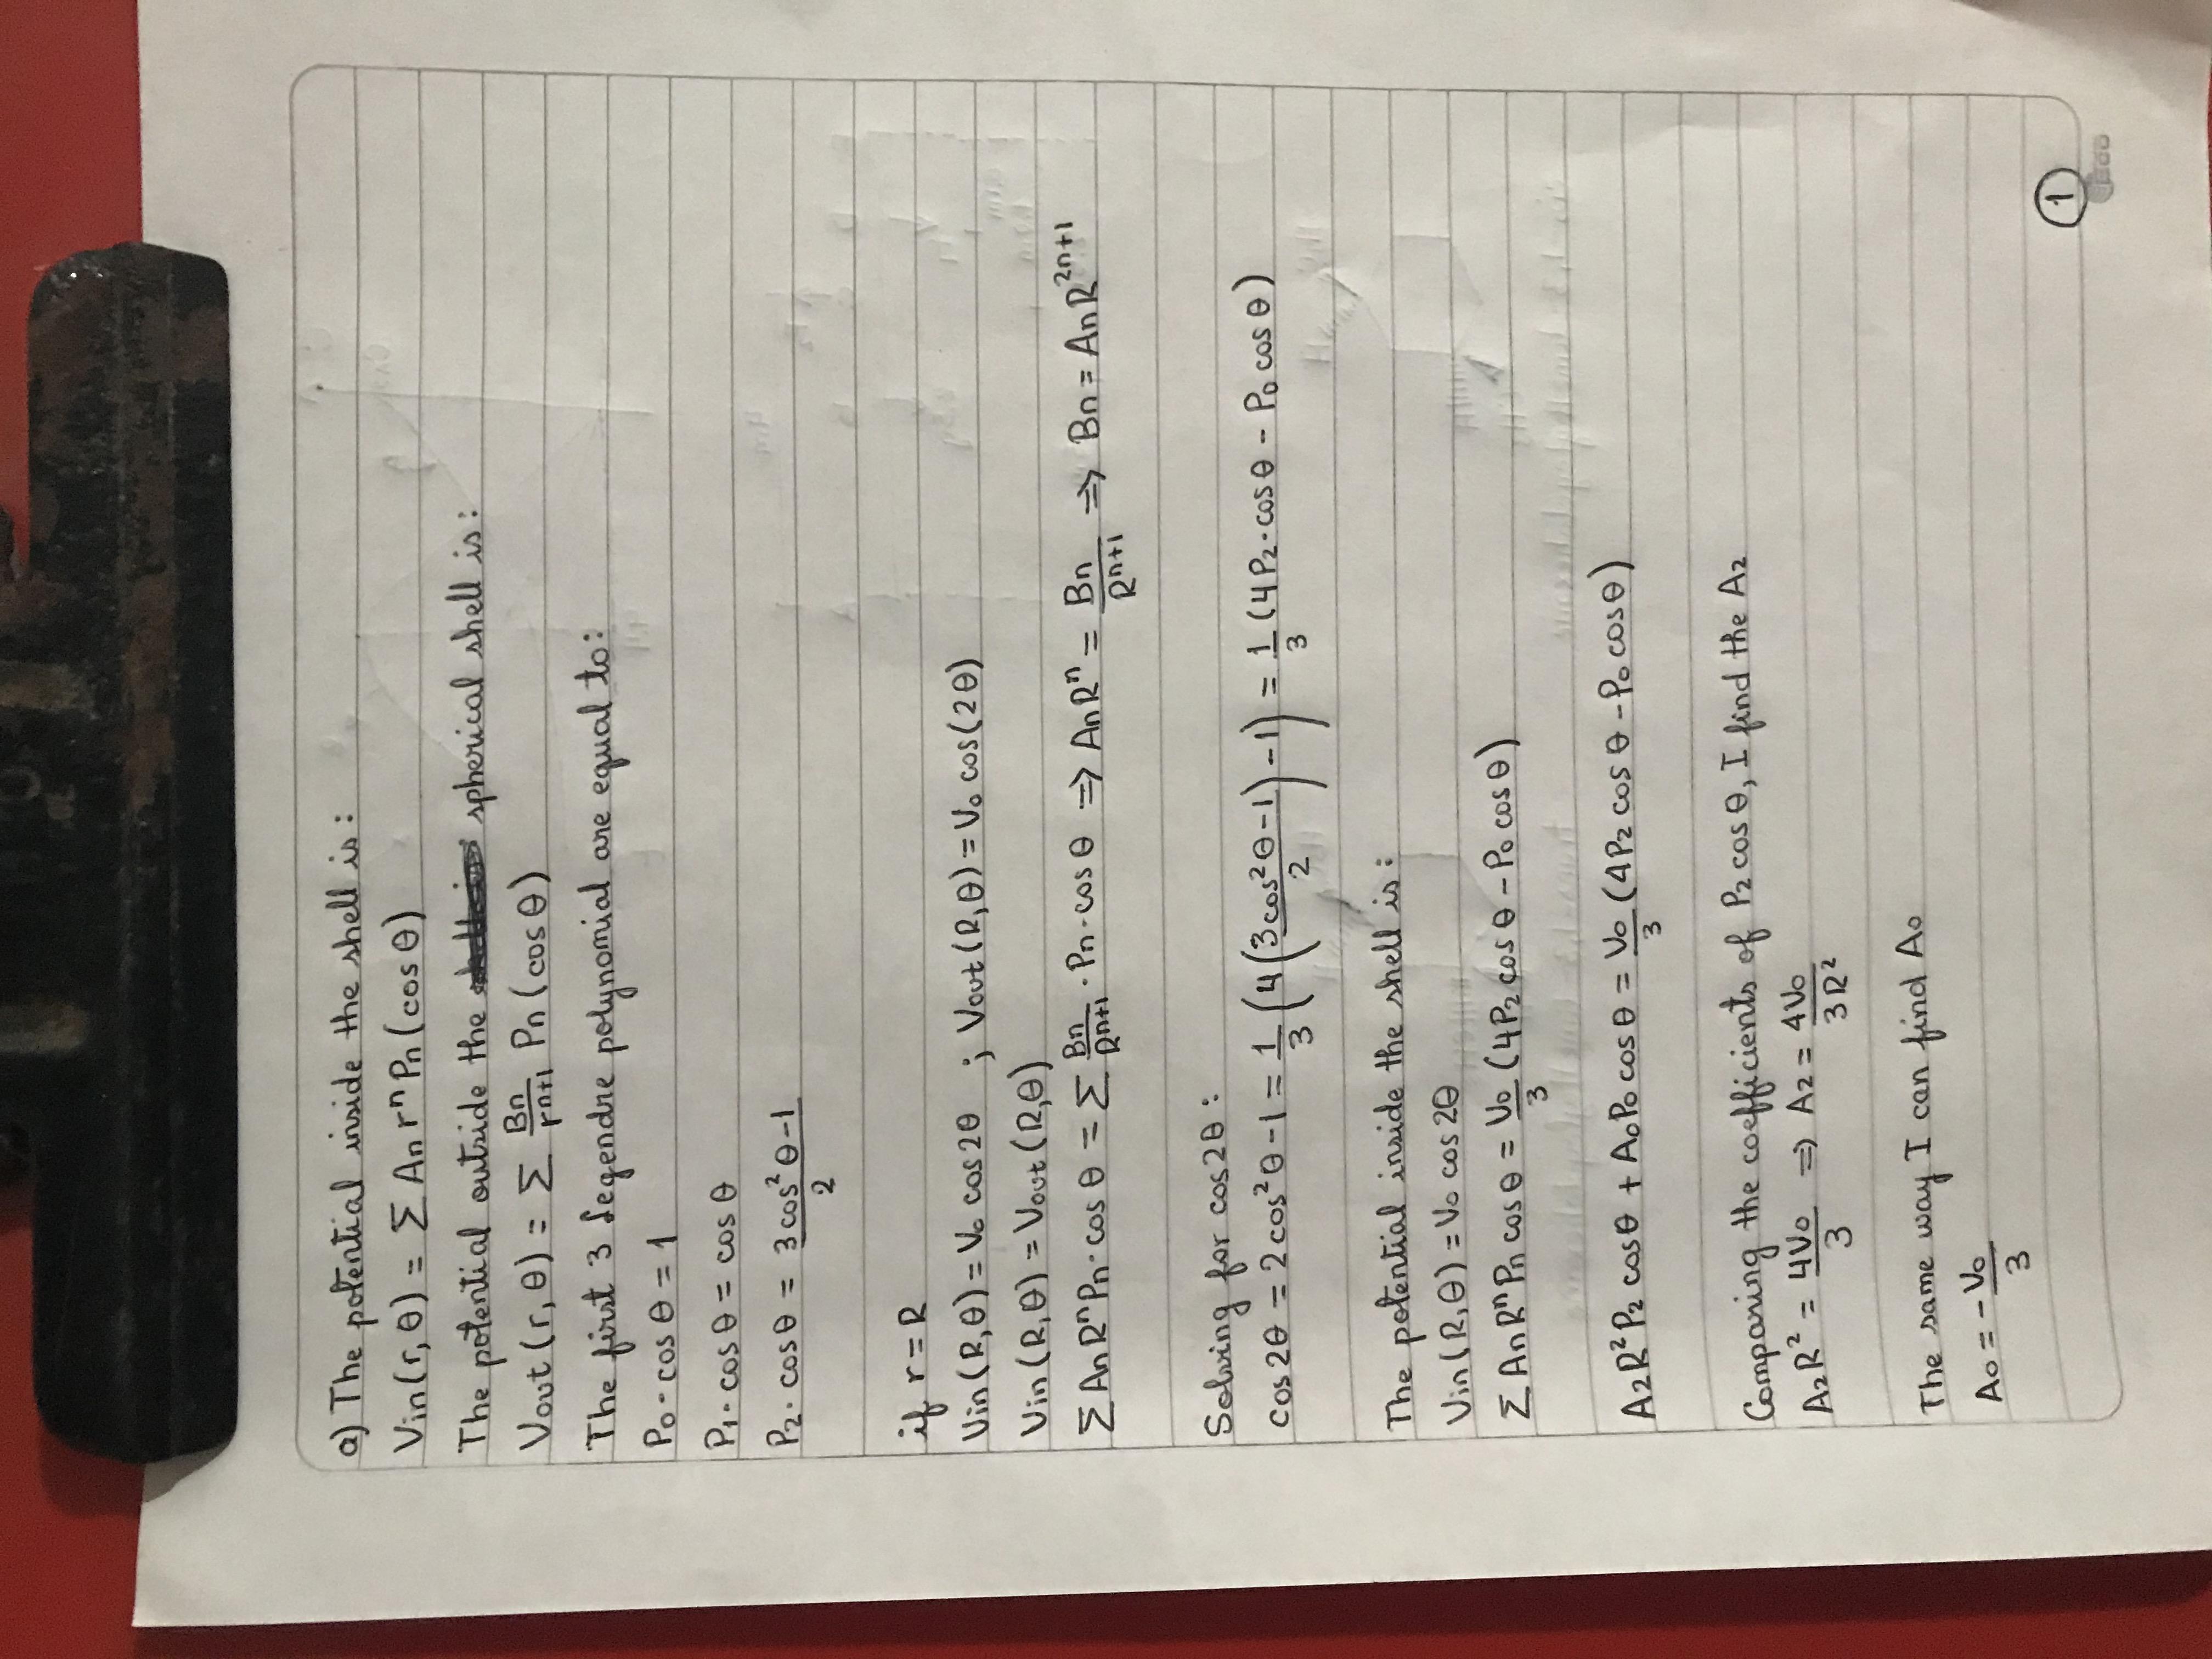 a) The potential inside the shell is:
Vin(r,θ) = Σ An rⁿ Pn(cosθ)
The potential outside the spherical shell is:
Vout(r,θ) = Σ Bn/rⁿ⁺¹ Pn(cosθ)
The first 3 Legendre polynomial are equal to:
P₀·cosθ = 1
P₁·cosθ = cosθ
P₂·cosθ = (3cos²θ-1)/2
if r=R
Vin(R,θ) = V₀ cos2θ ; Vout(R,θ) = V₀ cos(2θ)
Vin(R,θ) = Vout(R,θ)
Σ AnRⁿPn·cosθ = Σ Bn/Rⁿ⁺¹ · Pn·cosθ ⇒ AnRⁿ = Bn/Rⁿ⁺¹ ⇒ Bn = AnR²ⁿ⁺¹
Solving for cos2θ:
cos2θ = 2cos²θ-1 = 1/3 (4((3cos²θ-1)/2)-1) = 1/3 (4P₂·cosθ - P₀cosθ)
The potential inside the shell is:
Vin(R,θ) = V₀ cos2θ
Σ AnRⁿPn cosθ = V₀/3 (4P₂cosθ - P₀cosθ)
A₂R²P₂cosθ + A₀P₀cosθ = V₀/3 (4P₂cosθ - P₀cosθ)
Comparing the coefficients of P₂cosθ, I find the A₂
A₂R² = 4V₀/3 ⇒ A₂ = 4V₀/3R²
The same way I can find A₀
A₀ = -V₀/3
1